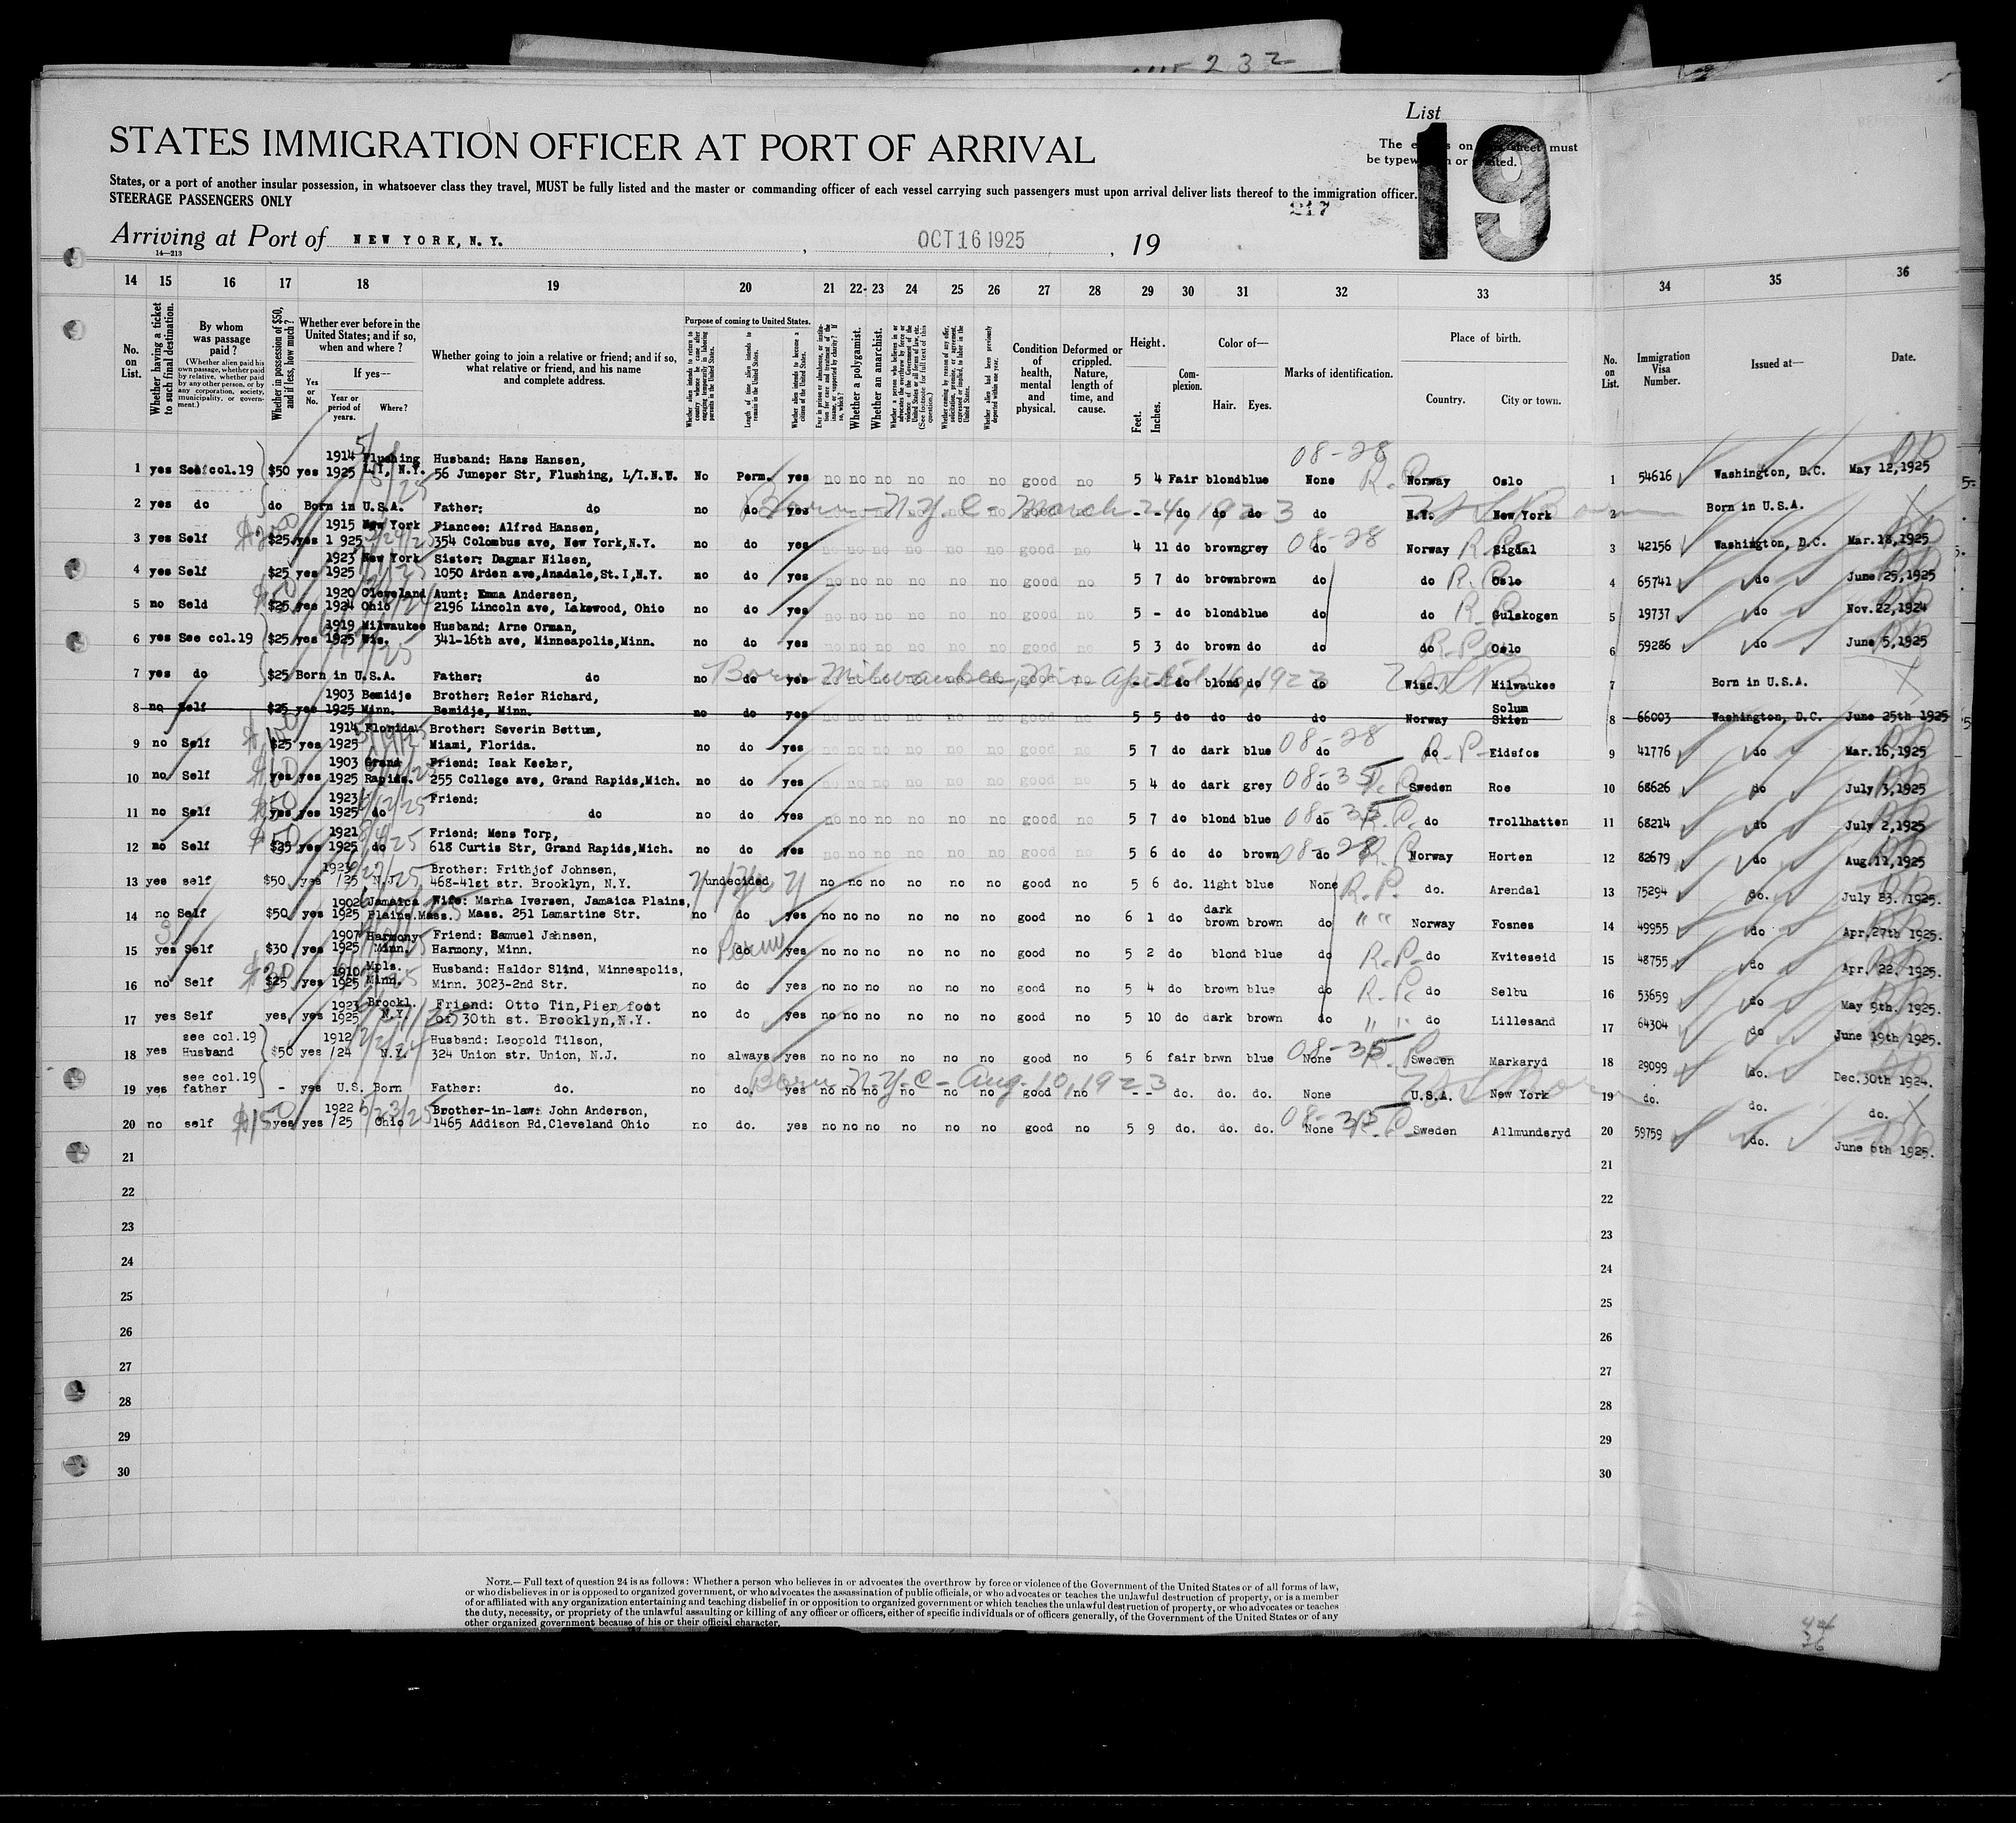 232
List
19
STATES IMMIGRATION OFFICER AT PORT OF ARRIVAL
The on must
be or
States, or a port of another insular possession, in whatsoever class they travel, MUST be fully listed and the master or commanding officer of each vessel carrying such passengers must upon arrival deliver lists thereof to the immigration officer.
STEERAGE PASSENGERS ONLY
217
Arriving at Port of NEW YORK, N. Y. , OCT 16 1925 , 19
14—213
14 15 16 17 18 19 20 21 22- 23 24 25 26 27 28 29 30 31 32 33 34 35 36
No. on List.
Whether having a ticket to such final destination.
By whom was passage paid ?
(Whether alien paid his own passage, whether paid by relative, whether paid by any other person, or by any corporation, society, municipality, or government.)
Whether in possession of $50, and if less, how much ?
Whether ever before in the United States; and if so, when and where ?
Yes or No.
If yes—
Year or period of years.
Where?
Whether going to join a relative or friend; and if so, what relative or friend, and his name and complete address.
Purpose of coming to United States.
Length of time alien intends to remain in the United States.
Whether alien intends to become a citizen of the United States.
Whether a polygamist.
Whether an anarchist.
Condition of health, mental and physical.
Deformed or crippled. Nature, length of time, and cause.
Height.
Feet.
Inches.
Complexion.
Color of—
Hair. Eyes.
Marks of identification.
Place of birth.
Country. City or town.
No. on List.
Immigration Visa Number.
Issued at—
Date.
08-28
1914 Flushing Husband: Hans Hansen,
1 yes Self col.19 $50 yes 1925 L.I, N.Y. 56 Juneper Str, Flushing, L/I.N.W. No Perm. yes no no no no no no good no 5 4 Fair blond blue None R.P. Norway Oslo 1 54616 Washington, D.C. May 12,1925
2 yes do do Born in U.S.A. Father: do no do yes Born - N.Y.C - March 24, 1923 - - do do do do N.Y. New York 2 Born in U.S.A.
1915 New York Fiancee: Alfred Hansen,
3 yes Self $25 yes 1 925 354 Colombus ave, New York,N.Y. no do yes no no no no no no good no 4 11 do brown grey 08-28 do Norway R.P. Sigdal 3 42156 Washington, D.C. Mar.18,1925
1923 New York Sister: Dagmar Nilsen,
4 yes Self $25 yes 1925 1050 Arden ave,Anadale,St.I,N.Y. no do yes no no no no no no good no 5 7 do brown brown do do R.P. Oslo 4 65741 do June 25,1925
1920 Cleveland Aunt: Emma Andersen,
5 no Seld $25 yes 1924 Ohio 2196 Lincoln ave, Lakewood, Ohio no do yes no no no no no no good no 5 - do blond blue do do R.P. Gulskogen 5 19737 do Nov.22,1924
1919 Milwaukee Husband: Arne Orman,
6 yes See col.19 $25 yes 1925 Wis. 341-16th ave, Minneapolis,Minn. no do yes no no no no no no good no 5 3 do brown do do do Oslo 6 59286 do June 5,1925
7 yes do $25 Born in U.S.A. Father: do no do yes Born Milwaukee, Wis - April 16, 1923 - - do blond do do Wisc. Milwaukee 7 Born in U.S.A.
1903 Bemidje Brother: Reier Richard, Solum
8 no Self $25 yes 1925 Minn. Bemidje, Minn. no do yes no no no no no no good no 5 5 do do do do Norway Skien 8 66003 Washington, D.C. June 25th 1925
1914 Florida Brother: Severin Bettum,
9 no Self $25 yes 1925 Miami, Florida. no do yes no no no no no no good no 5 7 do dark blue 08-28 do do R.P. Eidsfos 9 41776 do Mar.16,1925
1903 Grand Friend: Isak Keeker,
10 no Self yes yes 1925 Rapids. 255 College ave, Grand Rapids,Mich. no do yes no no no no no no good no 5 4 do dark grey 08-35 do Sweden Roe 10 68626 do July 3,1925
1923 Friend:
11 no Self $50 yes yes 1925 do do no do yes no no no no no no good no 5 7 do blond blue 08-35 do R.P. do Trollhatten 11 68214 do July 2,1925
1921 Friend: Mens Torp,
12 no Self $50 $25 yes 1925 do 618 Curtis Str, Grand Rapids,Mich. no do yes no no no no no no good no 5 6 do do brown 08-28 do R.P. Norway Horten 12 82679 do Aug.11,1925
1923 Brother: Frithjof Johnsen,
13 yes self $50. yes /25 N.J. 468-41st str. Brooklyn, N.Y. undecided y no no no no no no good no 5 6 do. light blue None R.P. do. Arendal 13 75294 do. July 23. 1925.
1902 Jamaica Wife: Marha Iversen, Jamaica Plains,
14 no Self $50 yes 1925 Plains.Mass. Mass. 251 Lamartine Str. no do yes no no no no no no good no 6 1 do dark brown brown do " " Norway Fosnes 14 49955 do Apr.27th 1925.
1907 Harmony Friend: Samuel Jahnsen,
15 yes Self $30 yes 1925 Minn. Harmony, Minn. no do yes no no no no no no good no 5 2 do blond blue do R.P. do Kviteseid 15 48755 do Apr. 22. 1925.
1910 Mpls. Husband: Haldor Slind, Minneapolis,
16 no Self $25 yes 1925 Minn. Minn. 3023-2nd Str. no do yes no no no no no no good no 5 4 do brown blue do R.P. do Selbu 16 53659 do May 9th. 1925.
1923 Brookl. Friend: Otto Tin,Pier foot
17 yes Self yes, yes 1925 N.Y. of 30th st. Brooklyn,N.Y. no do yes no no no no no no good no 5 10 do dark brown do " " do Lillesand 17 64304 do June 19th 1925.
see col.19 1912 Husband: Leopold Tilson,
18 yes Husband $50 yes /24 N.Y. 324 Union str. Union, N.J. no always yes no no no no no no good no 5 6 fair brwn blue 08-35 None Sweden Markaryd 18 29099 do. Dec.30th 1924.
see col.19
19 yes father - yes U.S. Born Father: do. no do. yes Born N-Y-C- Aug. 10, 1923 no no no no no no good no - - do. do. do. None U.S.A. New York 19 do. do. do.
1922 5/23/25 Brother-in-law: John Anderson,
20 no self $150 yes yes /25 Ohio 1465 Addison Rd.Cleveland Ohio no do. yes no no no no no no good no 5 9 do. do. do. 08-35 None Sweden Allmunderyd 20 59759 do. June 6th 1925.
21 21
22 22
23 23
24 24
25 25
26 26
27 27
28 28
29 29
30 30
NOTE.—Full text of question 24 is as follows: Whether a person who believes in or advocates the overthrow by force or violence of the Government of the United States or of all forms of law,
or who disbelieves in or is opposed to organized government, or who advocates the assassination of public officials, or who advocates or teaches the unlawful destruction of property, or is a member
of or affiliated with any organization entertaining and teaching disbelief in or opposition to organized government or which teaches the unlawful destruction of property, or who advocates or teaches
the duty, necessity, or propriety of the unlawful assaulting or killing of any officer or officers, either of specific individuals or of officers generally, of the Government of the United States or of any
other organized government because of his or their official character.